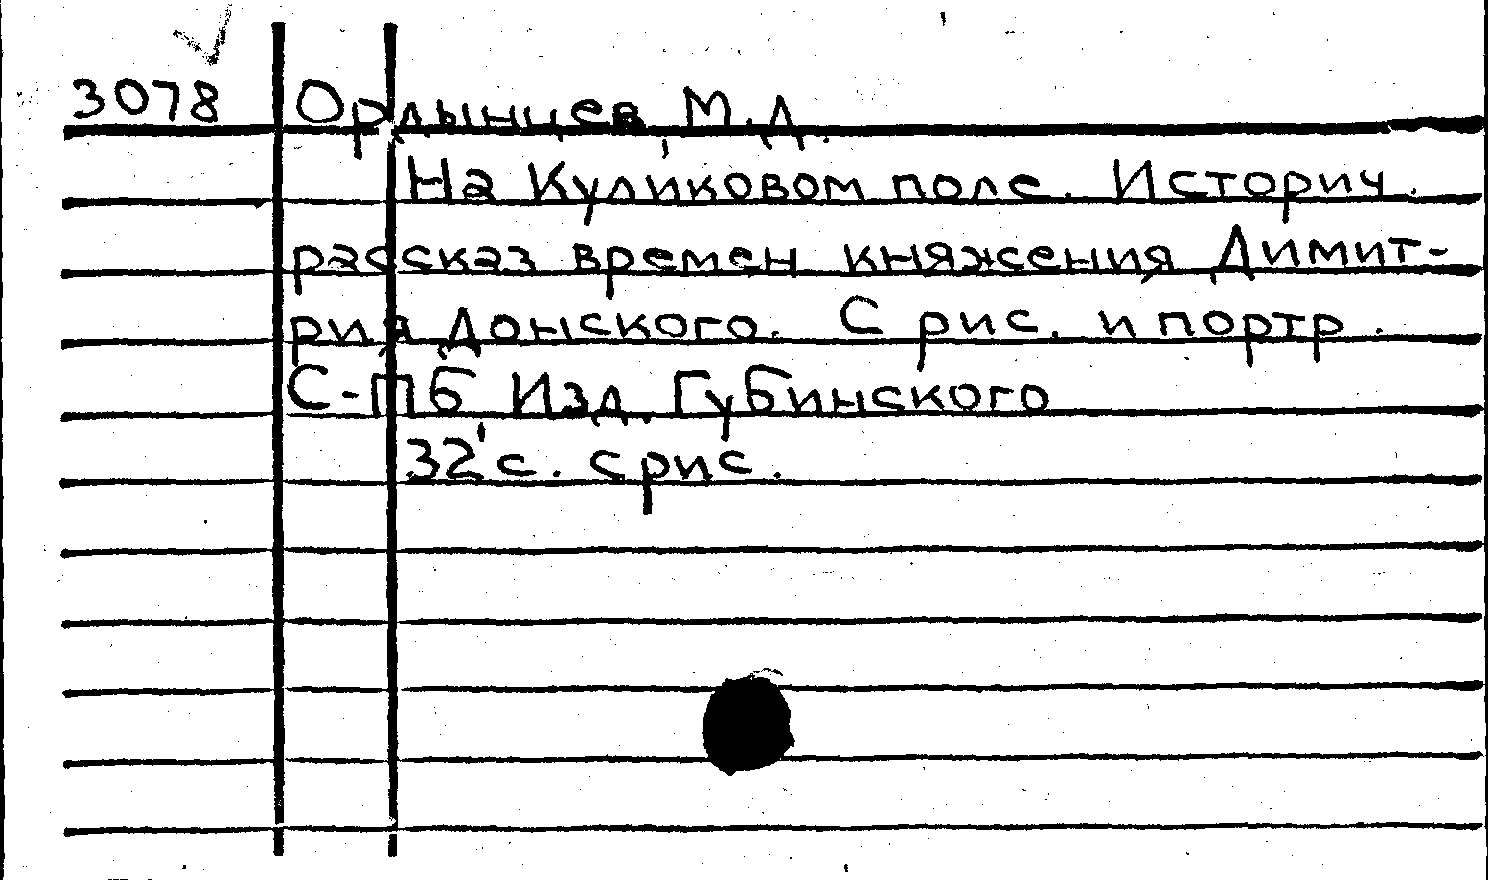 3078 Ордынцев, М.Д.
На Куликовом поле. Историч.
рассказ времен княжения Димит-
рия Донского. С рис. и портр.
С-Пб Изд. Губинского
32 с. с рис.